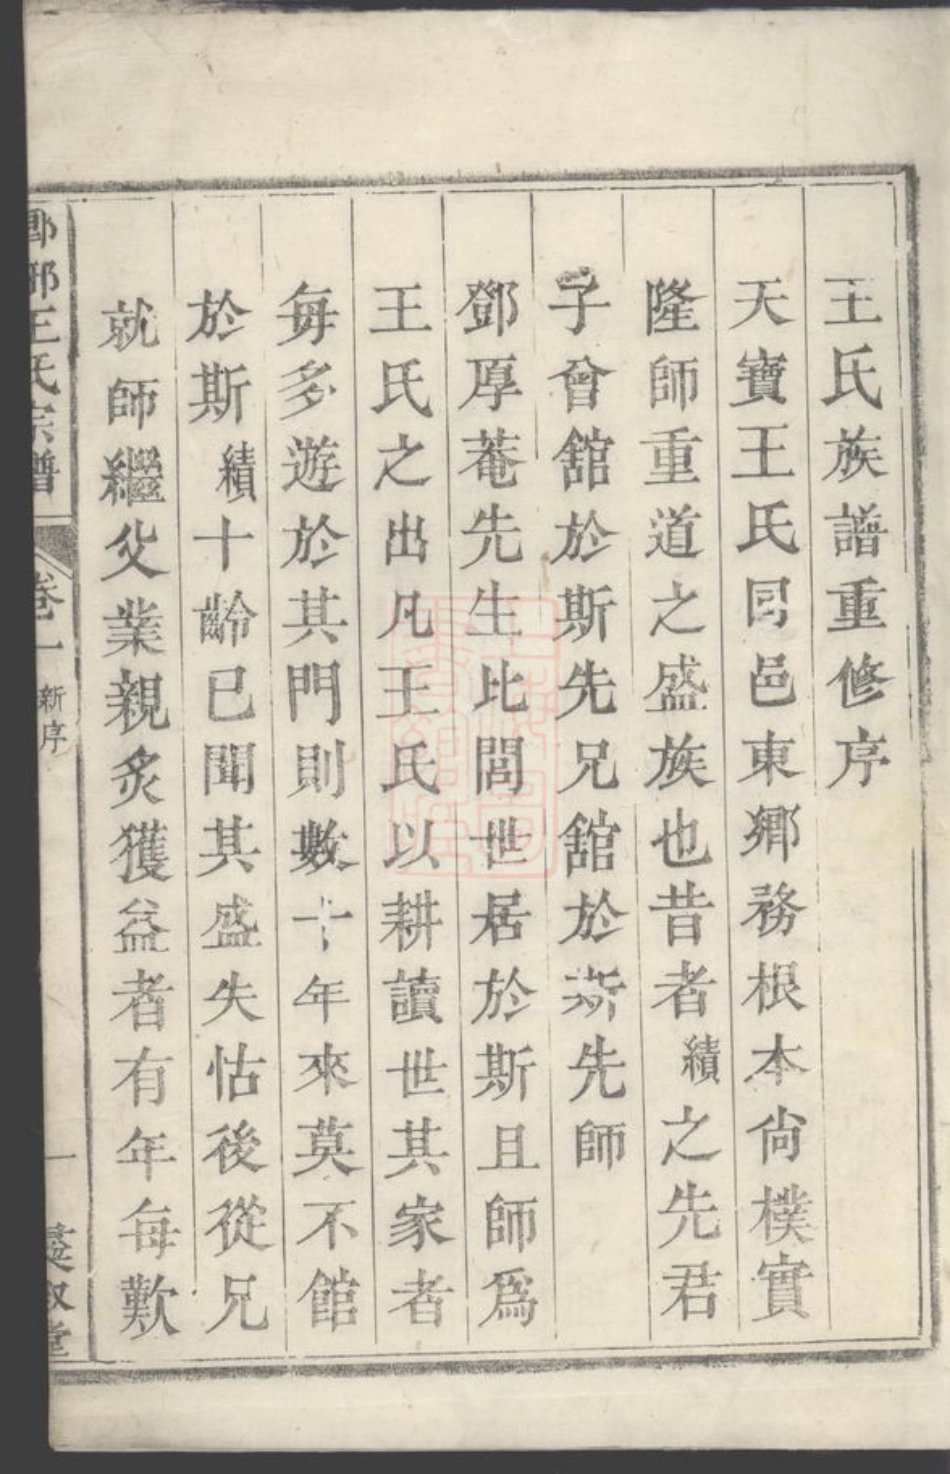 王氏族譜重修序
天寶王氏同邑東鄉務根本尙樸實
隆師重道之盛族也昔者績之先君
子曾舘於斯先兄舘於斯先師
鄧厚菴先生比閭世居於斯且師爲
王氏之出凡王氏以耕讀世其家者
每多遊於其門則數十年來莫不館
於斯績十齡已聞其盛失怙後從兄
就師繼父業親炙獲益者有年每歎
邪王氏宗譜
卷一
新序
一
堂